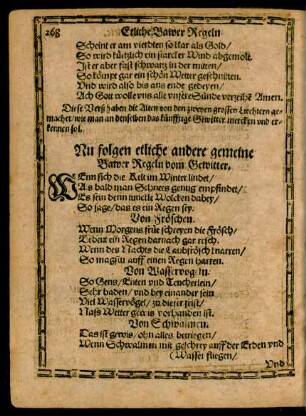 268 Etliche Bawer Regeln
Scheint er am vierdten so klar als Gold/
So wird kürtzlich ein starcker Wind abgemolt.
Ist er aber fast schwartz in der mitten/
So kömpt gar ein schön Wetter geschnitten.
Vnd wird also bis ans ende gedeyen/
Ach Gott wolle vns alle vnsere Sünde verzeihē Amen.
Diese Verß haben die Alten von den zweyen grossen Liechtern ge-
machet/ wie man an denselben das künfftige Gewitter mercken vnd er-
kennen sol.
Nu folgen etliche andere gemeine
Bawer Regeln vom Gewitter.
WEnn sich die Kelt im Winter lindet/
Als bald man Schnees genug empfindet/
Es sein denn Wolcken dabey/
So sage/ das es ein Regen sey.
Von Fröschen.
Wenn Morgens früe schreyen die Frösch/
Bedeut ein Regen darnach gar resch.
Wenn des Nachts die Laubfrösch knarren/
So magstu auff einen Regen harren.
Von Wasservögeln.
So Gens/ Enten vnd Teucherlein/
Sehr baden/ vnd bey einander sein
Viel Wasservögel/ zu dieser frist/
Naß Wetter gewis vorhanden ist.
Von Schwalmen.
Das ist gewis/ ohn alles betriegen/
Wenn Schwalmen mit geschrey auff der Erden vnd
(Wasser fliegen/
Vnd